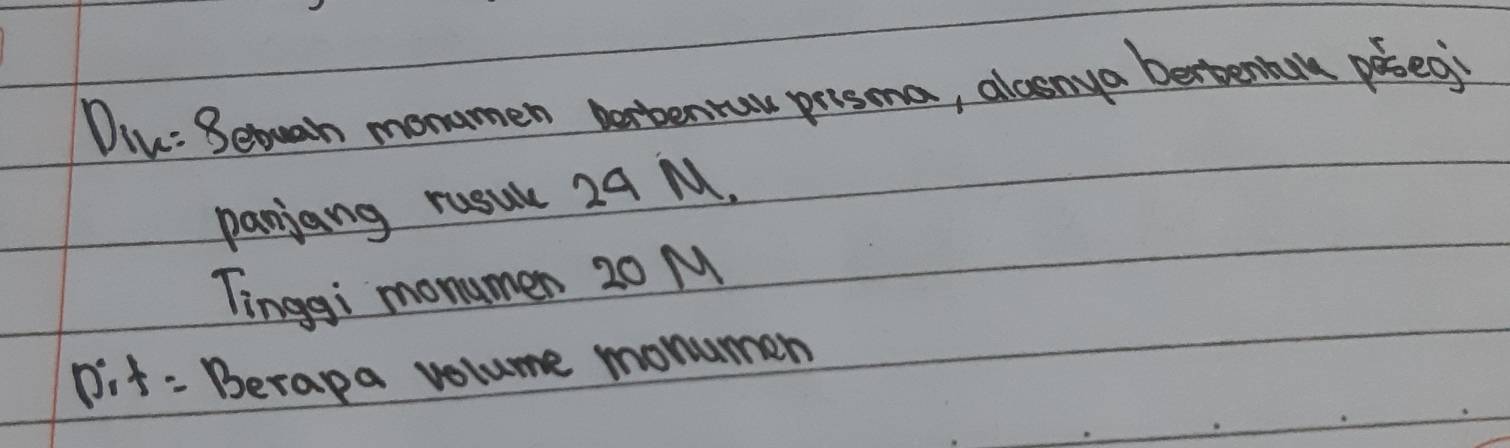 Dik = Sebuah monumen berbentuk prisma, alasnya berbentuk persegi
panjang rusuk 24 M.
Tinggi monumen 20 M
Dit = Berapa volume monumen